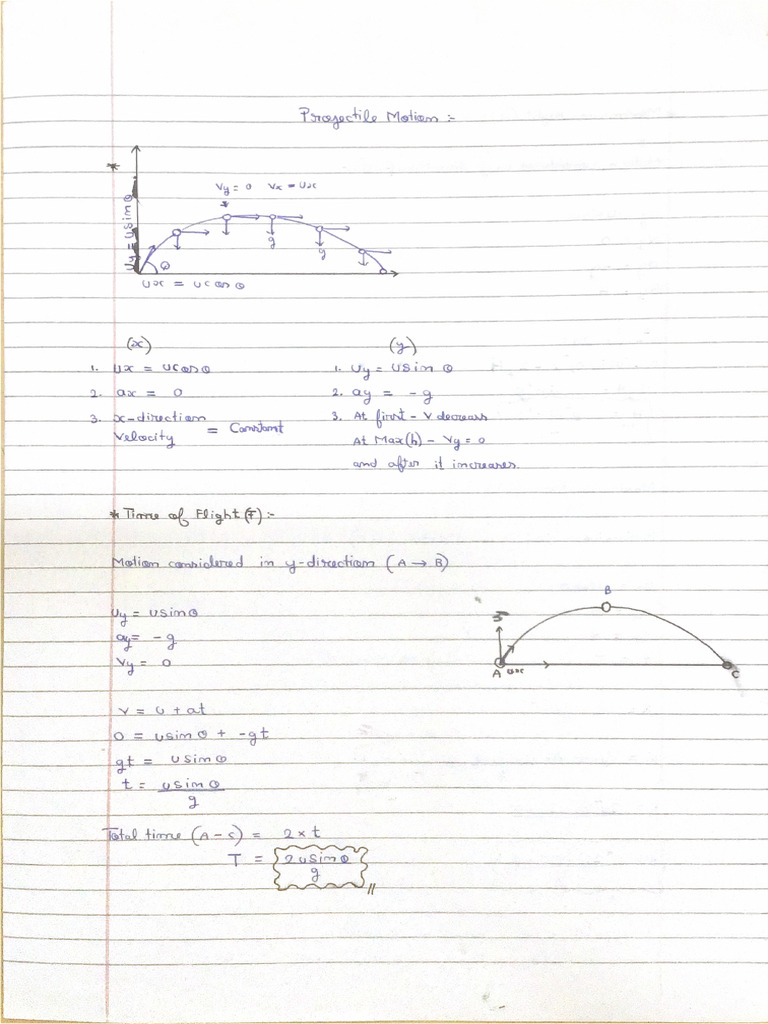 Projectile Motion :-
*
Vy = 0 Vx = Ux
Uy = usinθ
g
g
θ
Ux = ucosθ
(x)
1. Ux = ucosθ
2. ax = 0
3. x-direction
Velocity = Constant
(y)
1. Uy = usinθ
2. ay = -g
3. At first - V decreass
At Max(h) - Vy = 0
and after it increases.
* Time of Flight (T) :-
Motion considered in y-direction (A → B)
Uy = usinθ
ay = -g
Vy = 0
B
A
ux
C
v = u + at
0 = usinθ + -gt
gt = usinθ
t = usinθ
g
Total time (A - C) = 2 × t
T = 2usinθ
g